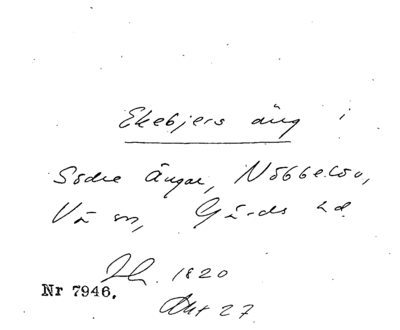 Ekebjers äng i
Södre Ängar, Nöbbelöv,
Vä sn, Gärds hd.
1820
Nr 7946.
Akt 27